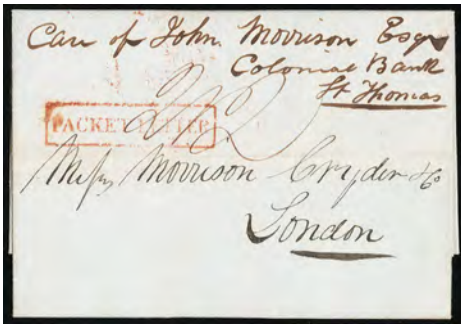 Care of John Morrison Esqr
Colonial Bank
St Thomas
PACKET LETTER
Messrs Morrison Cryder & Co
London